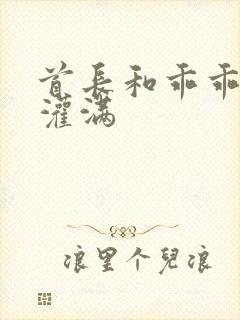 首長和乖乖
灌满
浪里个兒浪